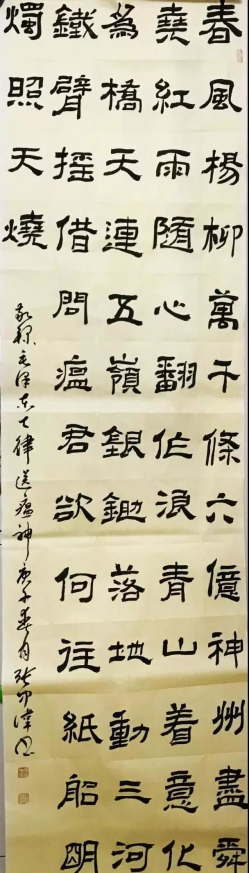 春風楊柳萬千條六億神州盡舜
堯紅雨隨心翻作浪青山着意化
為橋天連五嶺銀鋤落地動三河
鐵臂搖借問瘟君欲何往紙船明
燭照天燒
敬錄毛澤東七律送瘟神庚子春月張